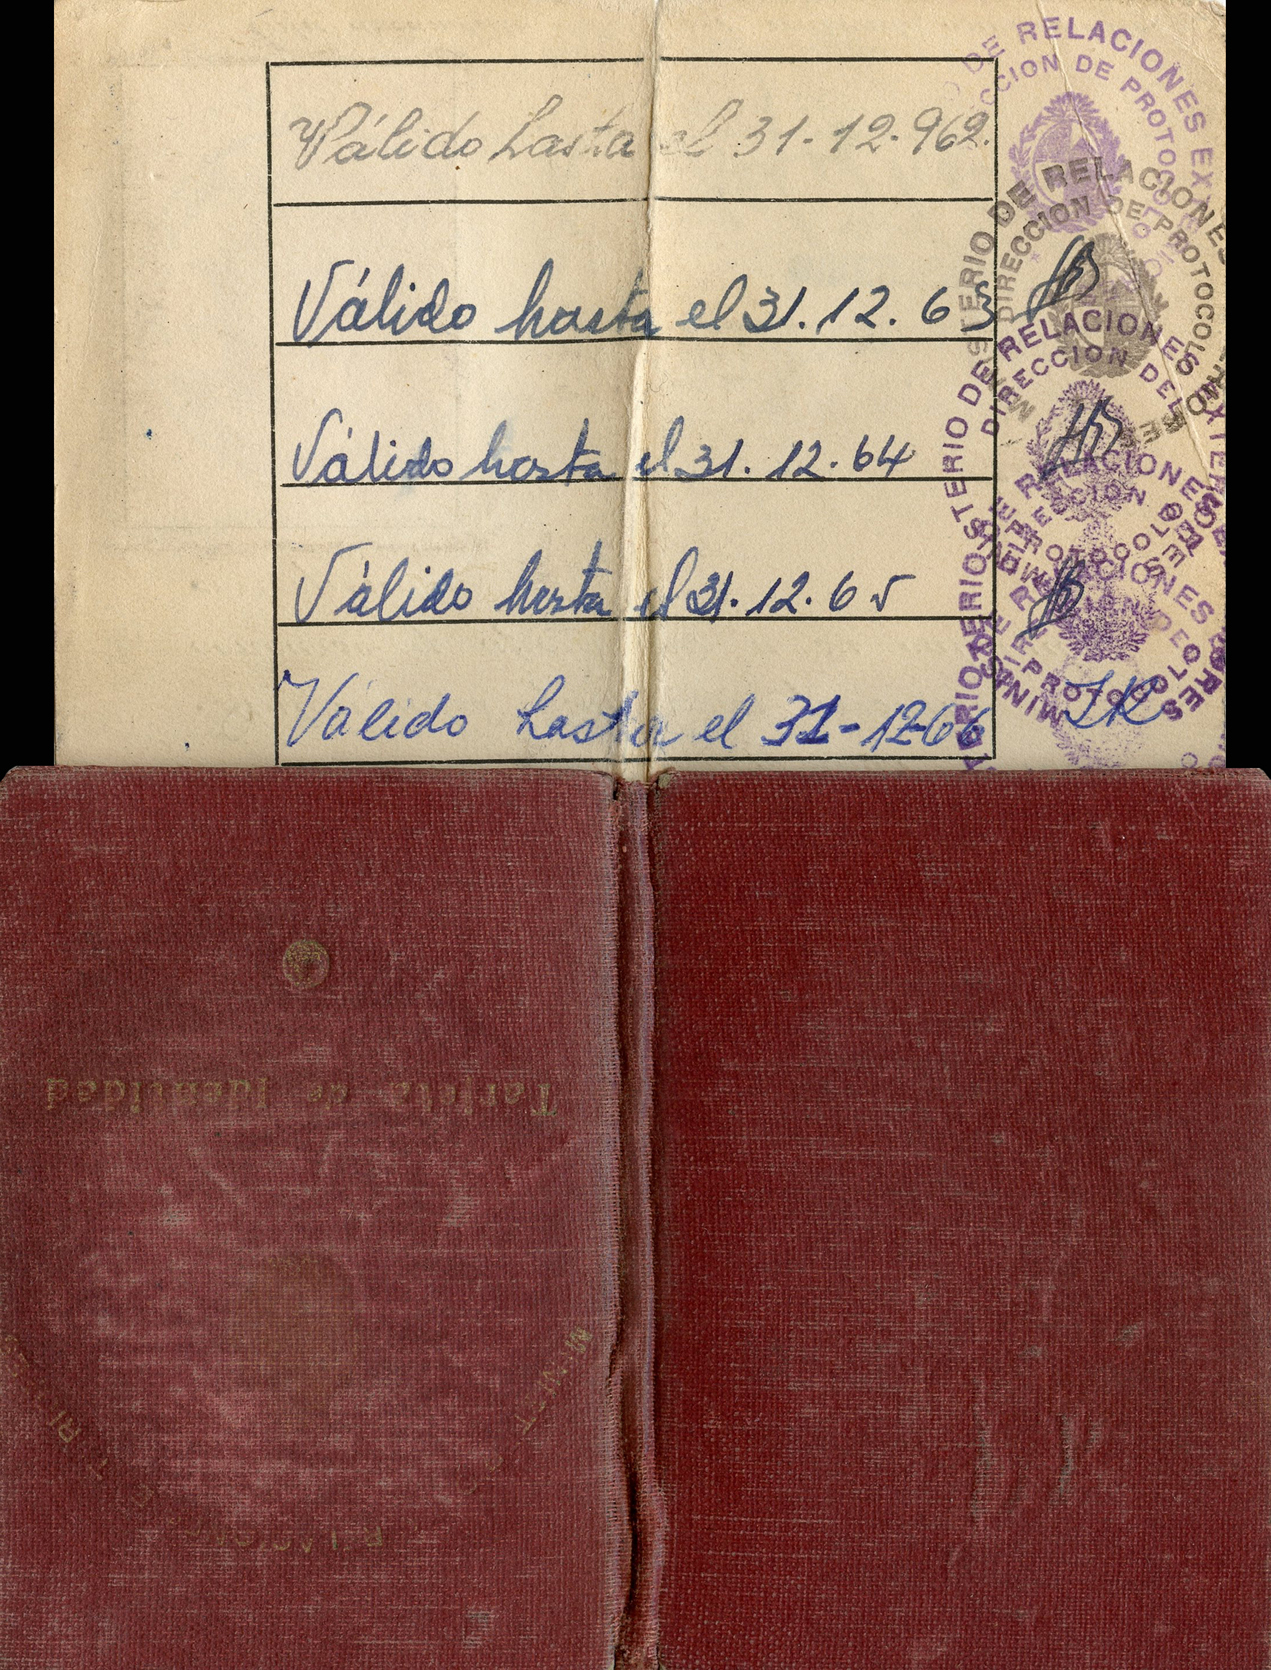 Válido hasta el 31-12-962.
Válido hasta el 31.12.63
Válido hasta el 31.12.64
Válido hasta el 31.12.65
Válido hasta el 31-12-66
DE RELACIONES EX
CCION DE PROTOCOLO
MINISTERIO DE RELACIONES
DIRECCION DE PROTOCOLO
MINISTERIO DE RELACIONES EXTERIORES
DIRECCION DEL
RELACIONES
DIRECCION DEL
PROTOCOLO
PROTOCOLO
JK
Tarjeta de Identidad